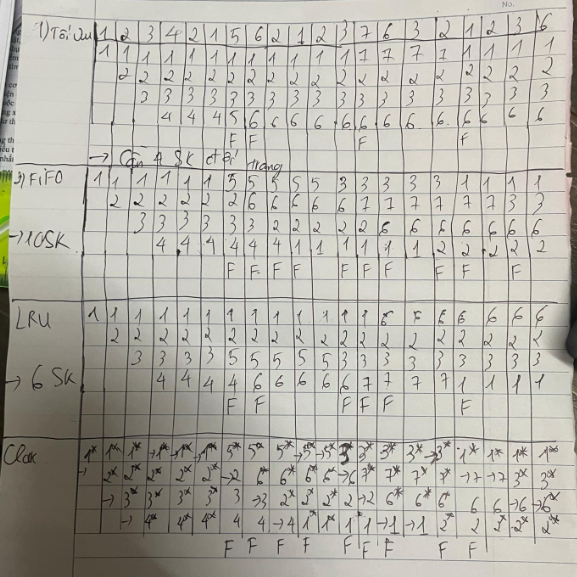 1) Tối ưu 1 2 3 4 2 1 5 6 2 1 2 3 7 6 3 2 1 2 3 6
1 1 1 1 1 1 1 1 1 1 1 1 7 7 7 7 1 1 1 1
2 2 2 2 2 2 2 2 2 2 2 2 2 2 2 2 2 2 2
3 3 3 3 3 3 3 3 3 3 3 3 3 3 3 3 3 3
4 4 4 5 6 6 6 6 6 6 6 6 6 6 6 6 6
F F F F
→ Cần 4 SK đổi trang
3) FIFO 1 1 1 1 1 1 5 5 5 5 5 3 3 3 3 3 1 1 1 1
2 2 2 2 2 2 6 6 6 6 6 7 7 7 7 7 7 3 3
→ 10SK 3 3 3 3 3 3 2 2 2 2 2 6 6 6 6 6 6 6
4 4 4 4 4 4 1 1 1 1 1 1 2 2 2 2 2
F F F F F F F F F F
LRU 1 1 1 1 1 1 1 1 1 1 1 1 1 6 6 6 6 6 6 6
2 2 2 2 2 2 2 2 2 2 2 2 2 2 2 2 2 2 2
3 3 3 3 5 5 5 5 5 3 3 3 3 3 3 3 3 3
→ 6 SK 4 4 4 4 6 6 6 6 6 7 7 7 7 1 1 1 1
F F F F F F
1* 1* 1* →1* →1* →1* 5* 5* 5* →5* →5* 3* 3* 3* 3* →3* 1* 1* 1* 1*
→ 2* 2* 2* 2* 2* →2 6* 6* 6* 6* →6 7* 7* 7* 7* →7 →7 3* 3*
→ 3* 3* 3* 3* 3 →3 2* 2* 2* 2 →2 6* 6* 6* 6 6 →6 →6*
→ 4* 4* 4* 4 4 →4 1* 1* 1* 1 →1 →1 2* 2 2* 2* 2*
F F F F F F F F F